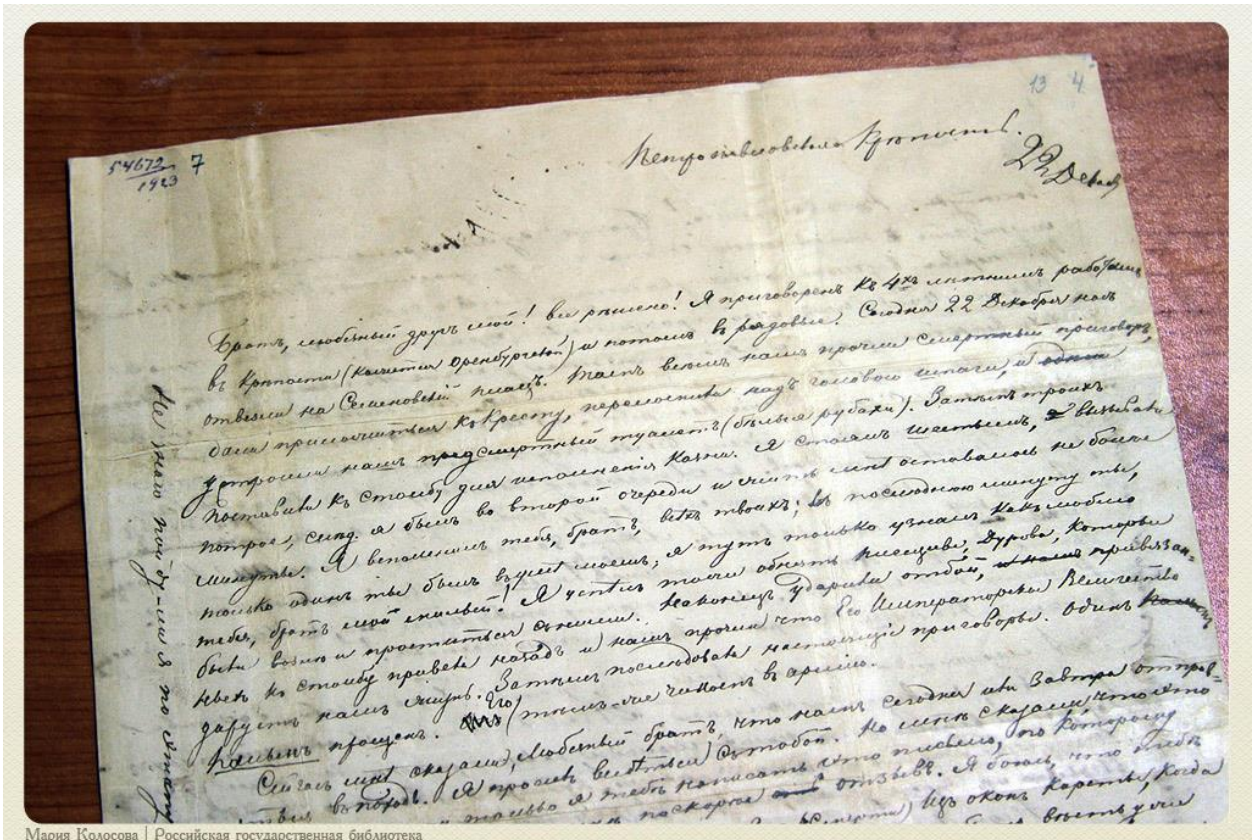 13 4
54672/1923 7
Петропавловская Крѣпость.
22 Декабря
Братъ, любезный другъ мой! все рѣшено! Я приговоренъ къ 4хъ лѣтнимъ работамъ
въ Крѣпости (кажется Оренбургской) и потомъ въ рядовые. Сегодня 22 Декабря насъ
отвезли на Семеновскій плацъ. Тамъ всѣмъ намъ прочли смертный приговоръ,
дали приложиться къ Кресту, переломили надъ головою шпаги, и
устроили нашъ предсмертный туалетъ (бѣлыя рубахи). Затѣмъ троихъ
поставили къ столбу для исполненія казни. Я стоялъ шестымъ, вызывали
потрое, слѣд. я былъ во второй очереди и жить мнѣ оставалось не болѣе
минуты. Я вспомнилъ тебя, братъ, всѣхъ твоихъ; въ послѣднюю минуту ты,
только одинъ ты былъ въ умѣ моемъ, я тутъ только узналъ какъ люблю
тебя, братъ мой милый! Я успѣлъ тоже обнять Плещеева, Дурова, которые
были возлѣ и проститься съ ними. Наконецъ ударили отбой, привязан-
ныхъ къ столбу привели назадъ и намъ прочли что Его Императорское Величество
даруетъ намъ жизнь. Затѣмъ послѣдовали настоящіе приговоры. Одинъ
Пальмъ прощенъ. Его (тѣмъ-же чиномъ въ армію.
Сейчасъ мнѣ сказали, любезный братъ, что намъ сегодня или завтра отправ-
ляться въ походъ. Я просилъ видѣться съ тобой. Но мнѣ сказали что это
только я тебѣ написать это письмо, по которому
поскорѣе отзывъ. Я боюсь, что тебѣ
изъ оконъ кареты, когда
Не знаю пойду-ли я по этапу
Мария Колосова | Российская государственная библиотека